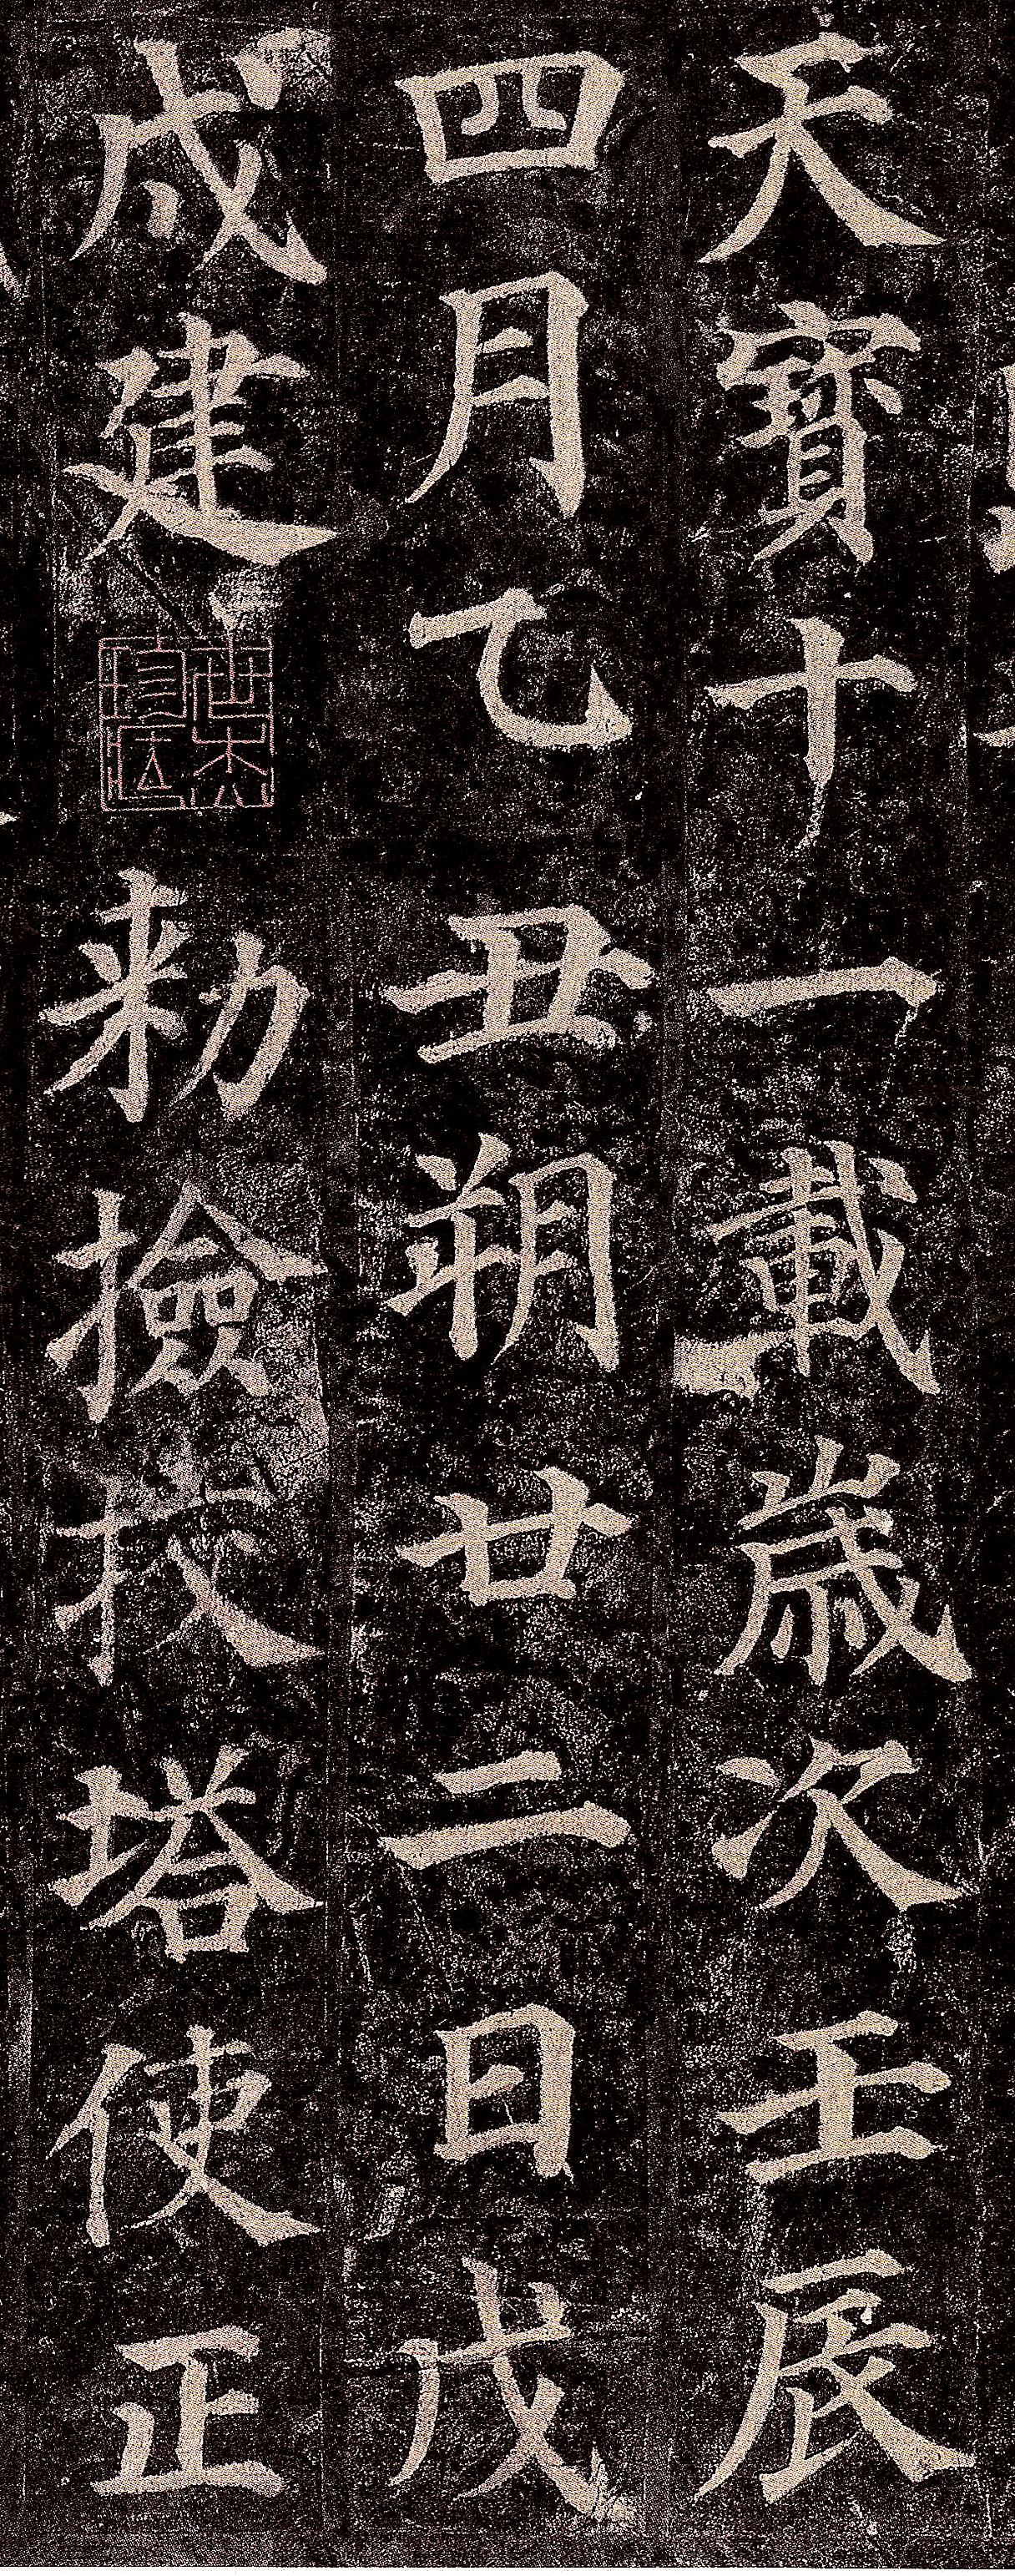 天寶十一載歲次壬辰
四月乙丑朔廿二日戊
戌建勑撿挍塔使正